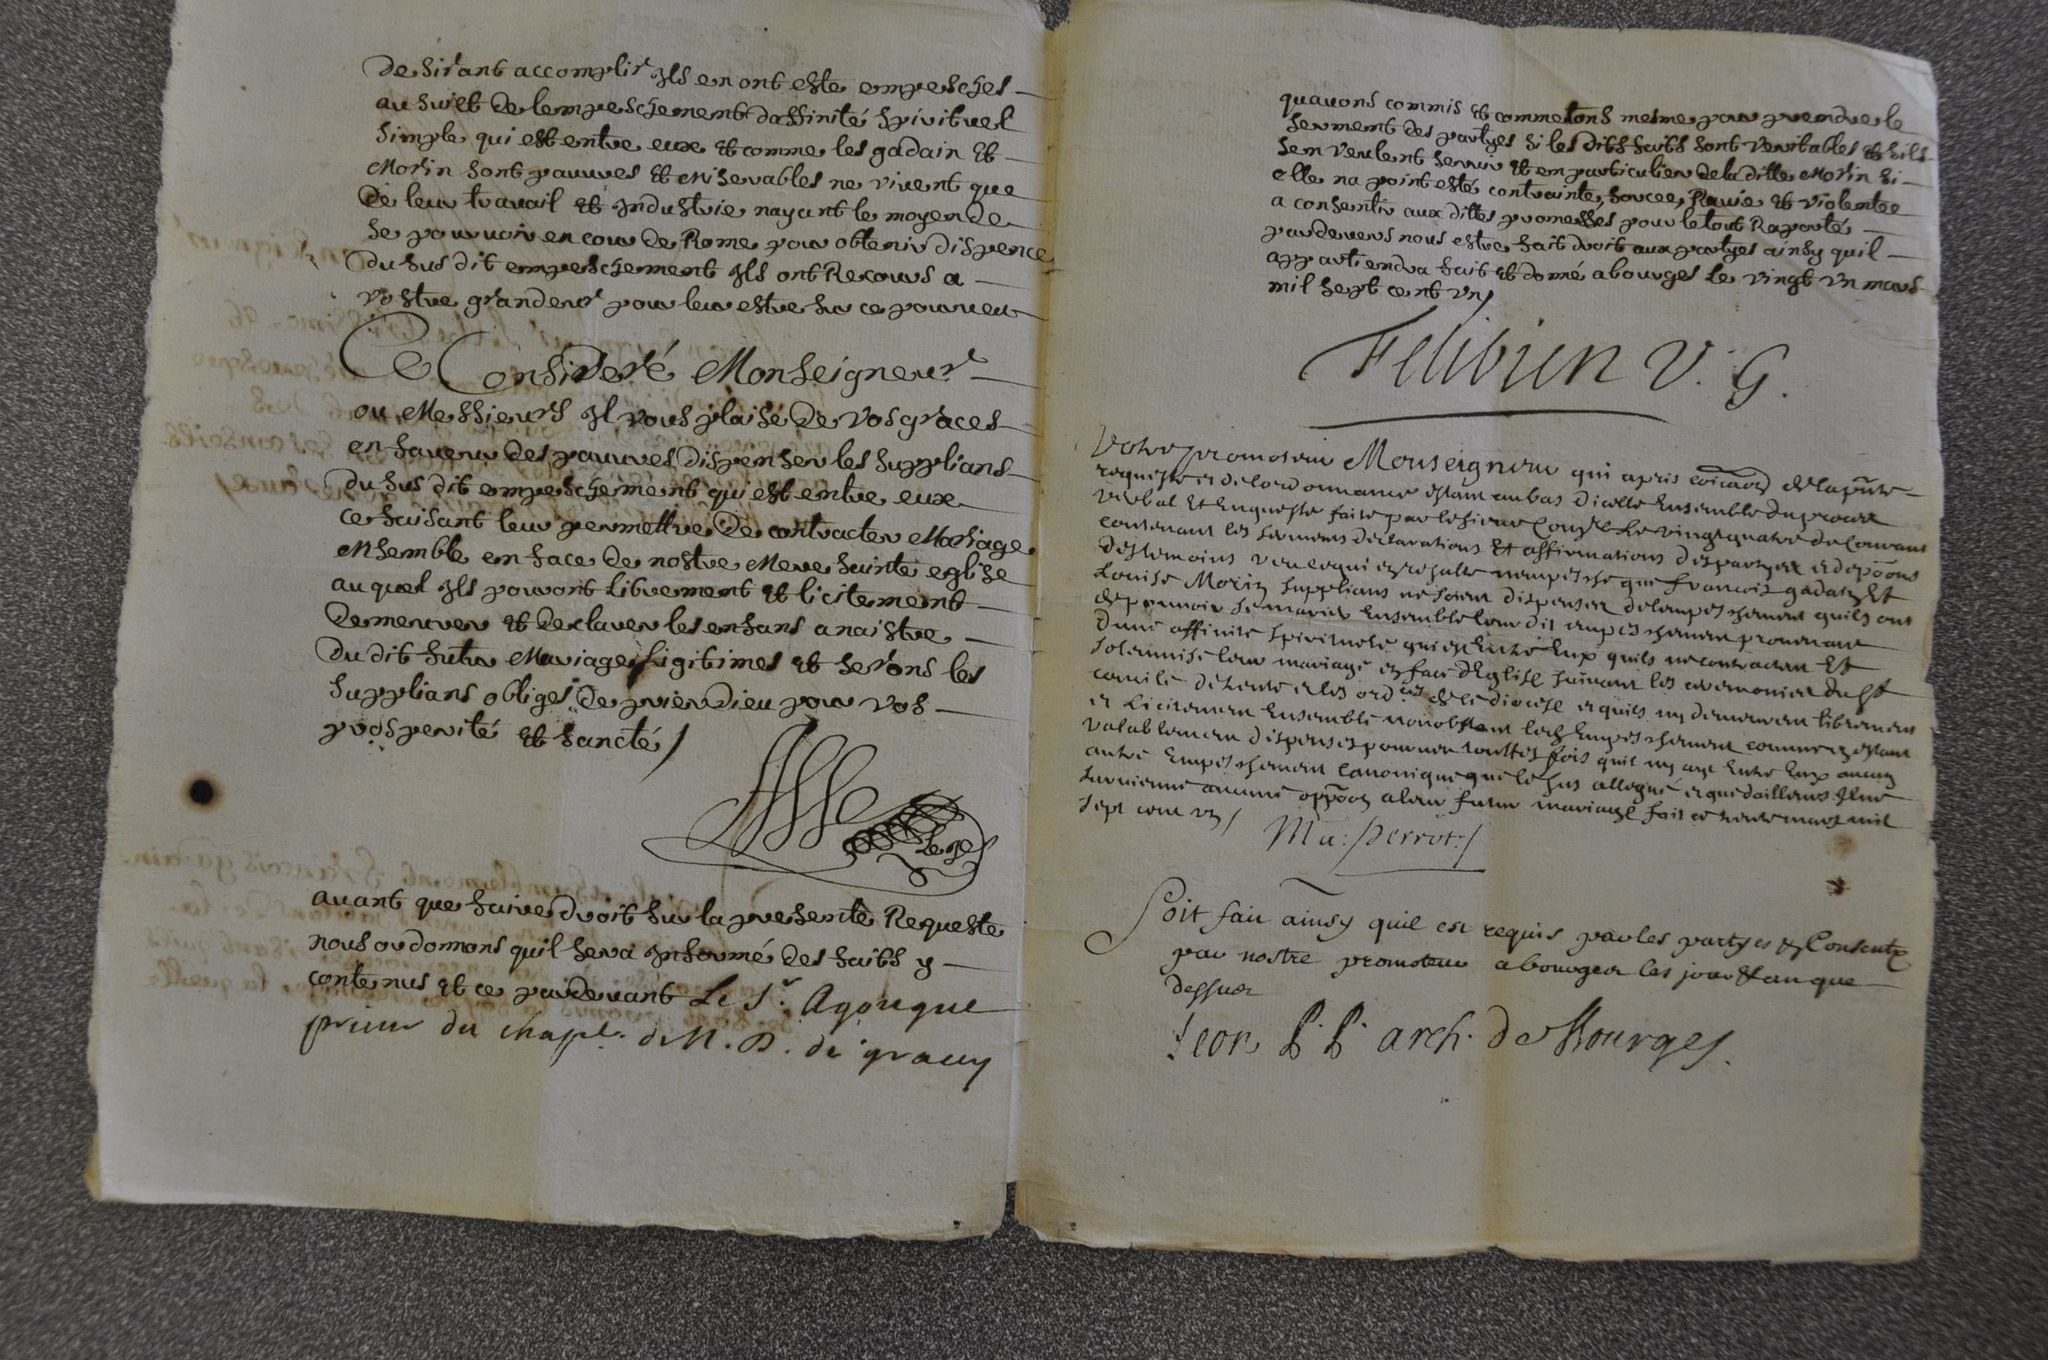 desirant accomplir Ils en ont esté empesches
au suiet de lempeschement daffinité spirituel
simple qui est entre eux et comme les gadain et
Morin sont pauvres et miserables ne vivent que
de leur travail et Industrie nayant le moyen de
se pourvoir en cour de Rome pour obtenir dispence
du sus dit empeschement Ils ont Recours a
vostre grandeur pour leur estre sur ce pourveu
Ce Consideré Monseigneur
ou Messieurs Il vous plaise de vos graces
en faveur des pauvres dispenser les supplians
du sus dit empeschement qui est entre eux
ce faisant leur permettre de contracter Mariage
ensemble en face de nostre Mere sainte eglise
au quel Ils pouront librement et licitement
demeurer et declarer les enfans a naistre
du dit futur Mariage ligitimes et serons les
supplians obliges de prier dieu pour vos
prosperité et sancté /
avant que faire droit sur la presente Requeste
nous ordonnons quil sera Informé des faits y
contenus et ce pardevant Le Sr. Agougue
prieur du chapl. de N. D. de graçay
quavons commis et commetons mesme pour prendre le
serment des partyes si les dits faits sont veritables et sils
sen veulent servir et en particulier de la ditte Morin si
elle na point esté contrainte, forcee, Ravie et violentee
a consentir aux dittes promesses pour le tout Raporté
pardevers nous estre fait droit aux partyes ainsy quil
appartiendra fait et donné a bourges le vingt un mars
mil sept cent un /
Felibien V. G.
Votre promoteur Monseigneur qui apris de la pnte
requeste et de lordonnance estant au bas dicelle Ensemble du proces
verbal Et Enqueste faite par le sieur le vingt quatre du Courant
contenant les sermens declarations Et affirmations des partyes et depoons
des temoins veu ce qui en resulte nempesche que francois gadain Et
Louise Morin supplians ne soient dispenses de lempeschement quils ont
de pouvoir se marier Ensemble leur dit empeschement provenant
dune affinité spirituele qui est Entre Eux quils ne contractent Et
solemnise leur mariage en face dEglise suivant les ceremonies du st
concile de trente et les ordces de ce diocese et quils ny demeurent librement
et Licitement Ensemble nonobstant led Empeschement comme en estant
valablement dispenses pourveu touttes fois quil ny aye Entre Eux aucun
autre Empeschement Canonique que le sus allegué et que dailleurs Il ne
survienne aucune oppoon a leur futur mariage fait ce trente mars mil
sept cent un /
Ma: Perrot /
Soit fait ainsy quil est requis par les partyes et Consenty
par nostre promoteur a bourges les jour et an que
dessus
Leon P. P. arch. de Bourges.